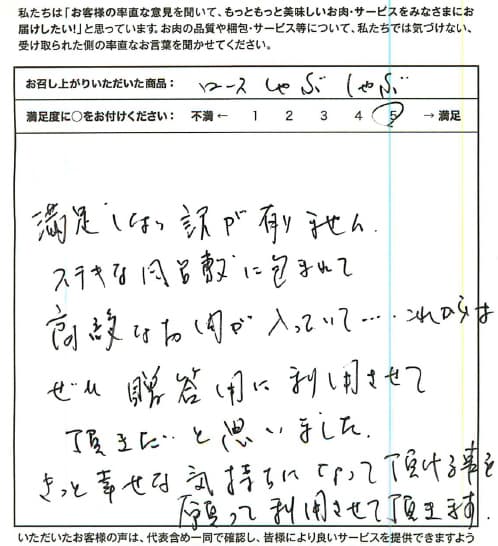 私たちは「お客様の率直な意見を聞いて、もっともっと美味しいお肉・サービスをみなさまにお
届けしたい!」と思っています。お肉の品質や梱包・サービス等について、私たちでは気づけない、
受け取られた側の率直なお言葉を聞かせてください。
お召し上がりいただいた商品： ロースしゃぶしゃぶ
満足度に○をお付けください： 不満 ← 1 2 3 4 5 → 満足
満足しない訳が有りません。
ステキな風呂敷に包まれて
高級なお肉が入っていて…。これからは
ぜひ贈答用に利用させて
頂きたいと思いました。
きっと幸せな気持ちになって頂ける事を
願って利用させて頂きます。
いただいたお客様の声は、代表含め一同で確認し、皆様により良いサービスを提供できますよう